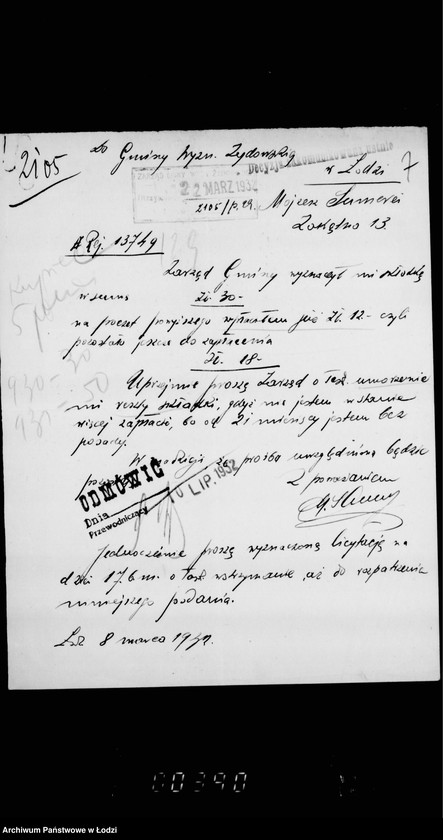 2105
Do Gminy Wyzn. Żydowskiej
w Łodzi
7
Decyzję zakomunikowano ustnie
22 MARZ 1932
2105/
Mojżesz
13.
Rej. 13749
Zarząd Gminy wyznaczył mi składkę
w sumie Zł. 30.-
na poczet powyższego wpłaciłem już Zł. 12.- czyli
pozostało jeszcze do zapłacenia
Zł. 18.-
Uprzejmie proszę Zarząd o łask. umorzenie
mi reszty składki, gdyż nie jestem w stanie
więcej zapłacić, bo od 21 miesięcy jestem bez
posady.
W nadziei że prośba uwzględnioną będzie
z poważaniem
ODMÓWIĆ
Dnia
LIP. 1932
Przewodniczący
930-30
930-50
Jednocześnie proszę wyznaczoną licytację na
dzień 17 b.m. o łask. wstrzymanie, aż do rozpatrzenia
niniejszego podania.
8 marca 1932.
00390
Archiwum Państwowe w Łodzi